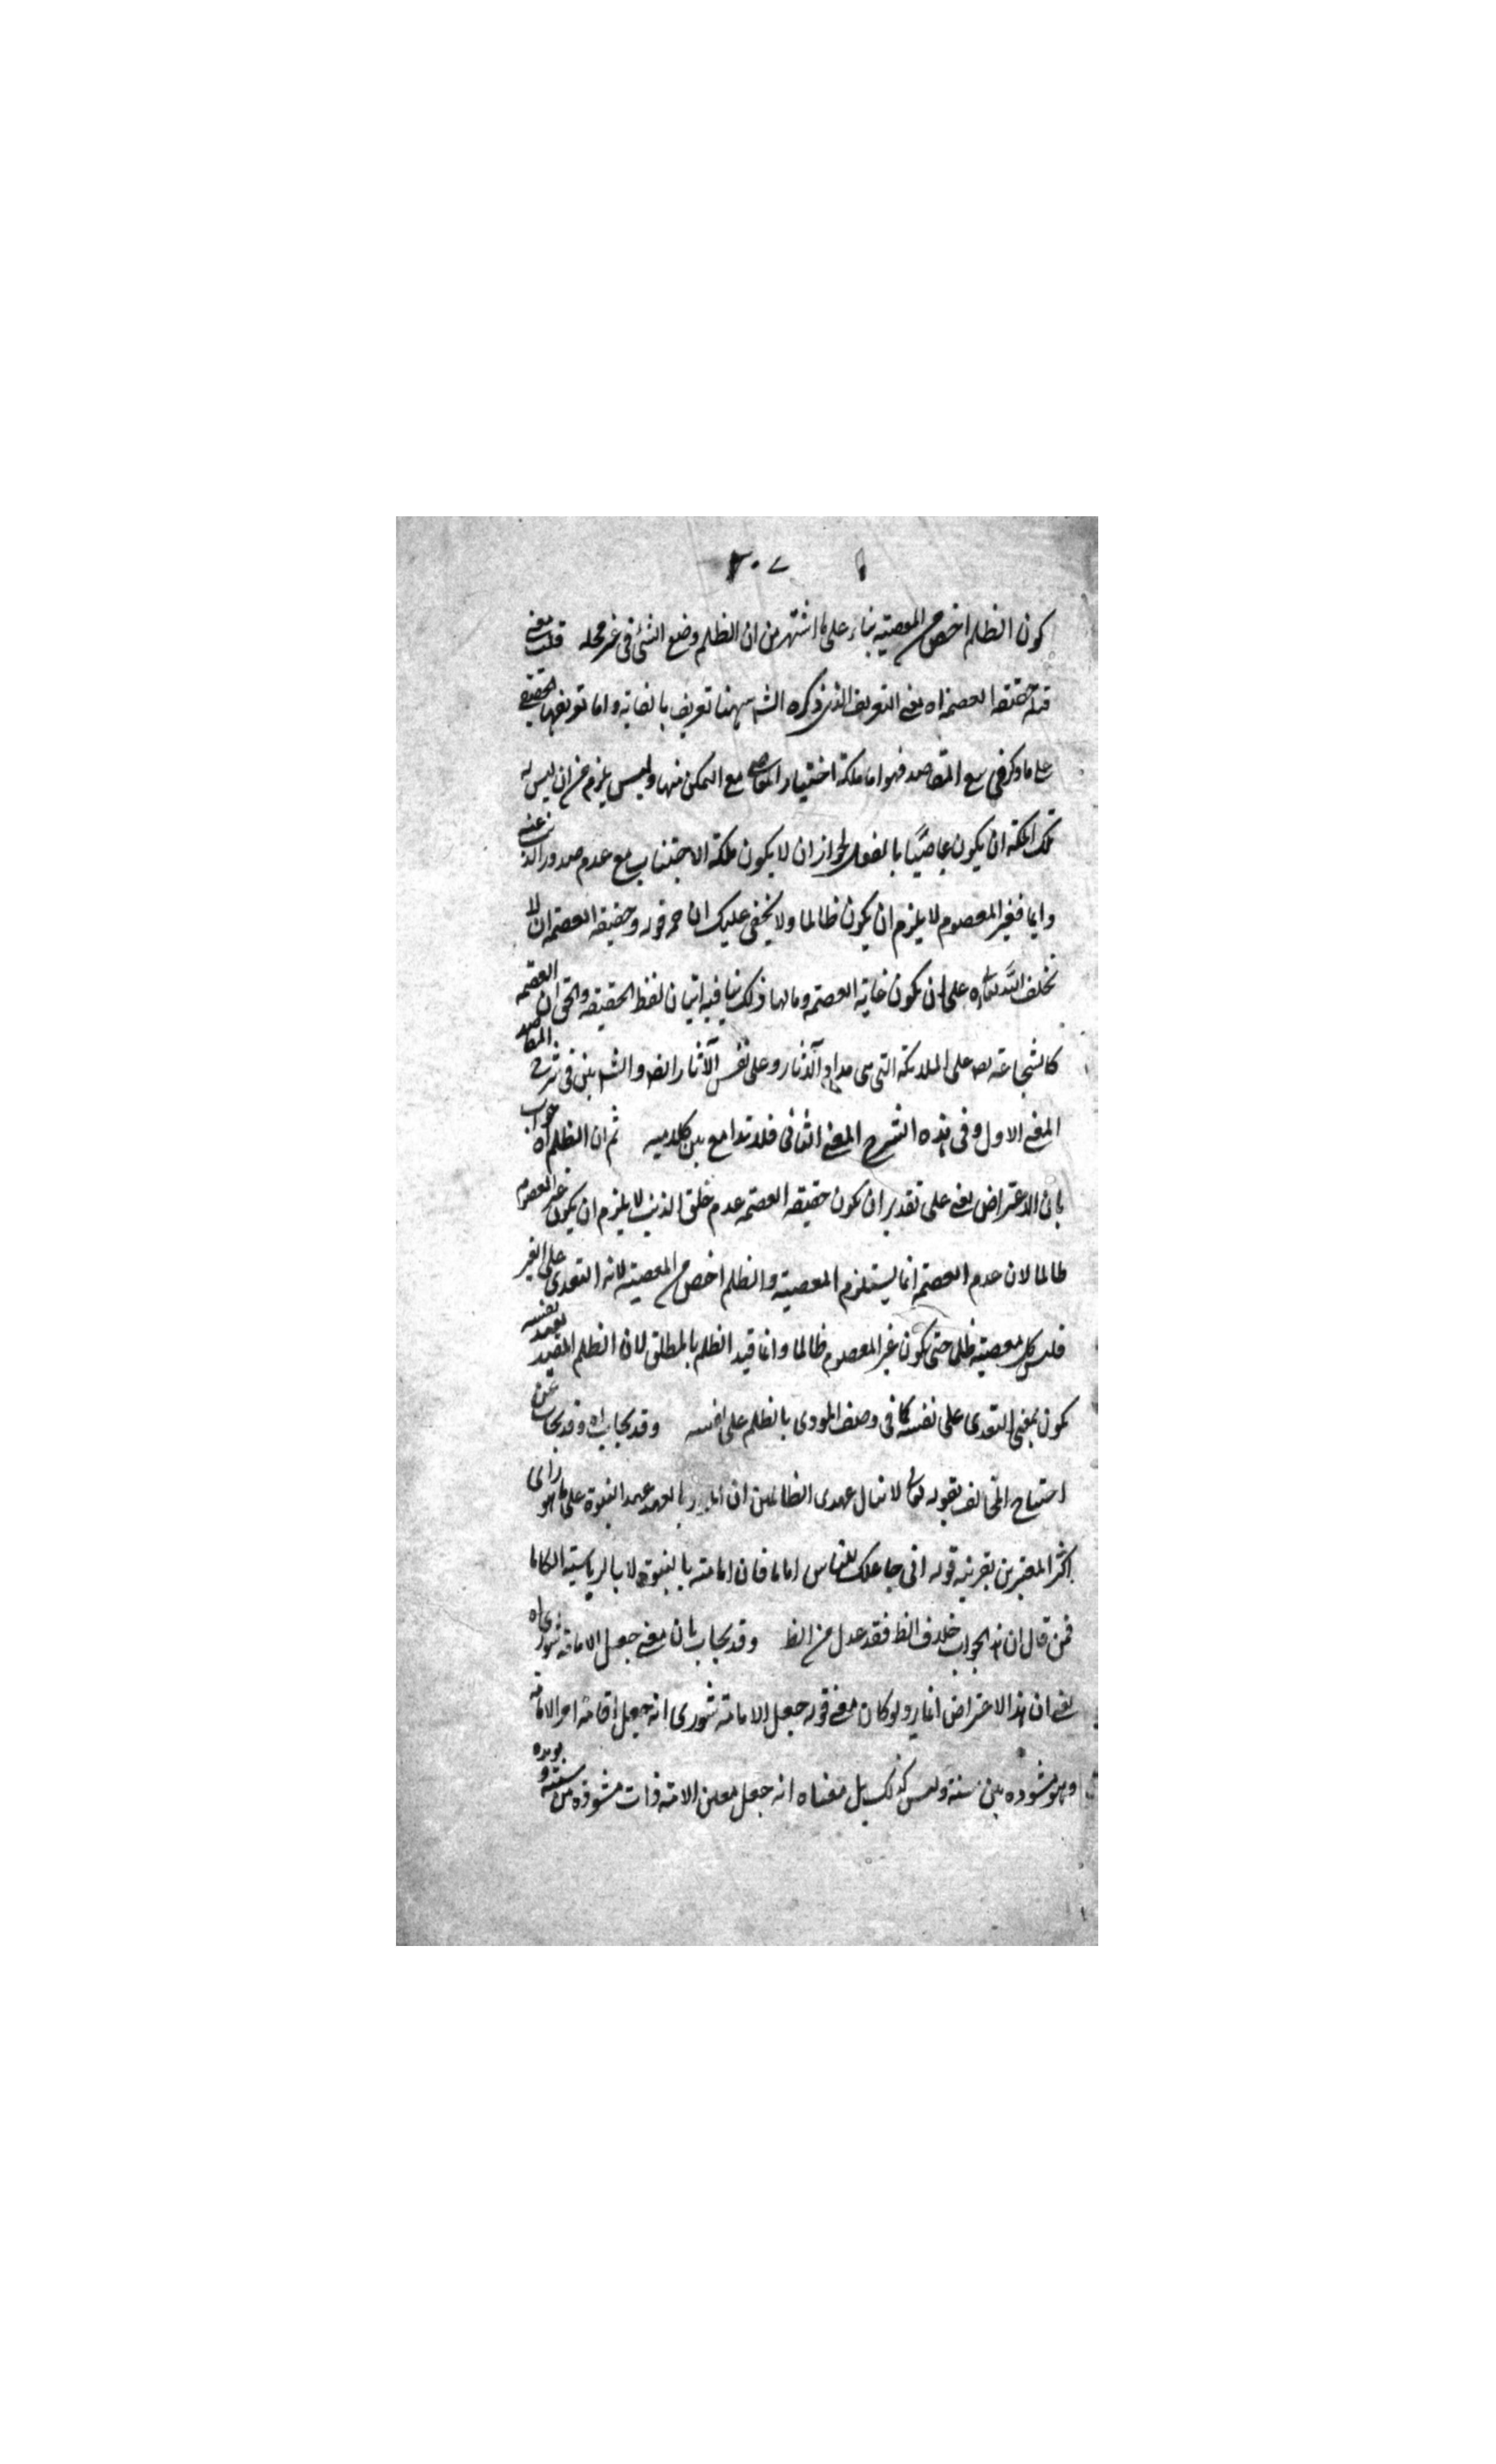 ٢٠٧
كون الظلم اخص من المعصية بناء على ما اشتهر من ان الظلم وضع الشئ فى غير محله قلت معنى
قوله حقيقة العصمة اه يعنى التعريف الذى ذكره الش ههنا تعريف بالغاية واما تعريفها الحقيقى
على ما ذكر فى المقاصد فهو اما ملكة اختيار المعاصى مع التمكن منها وليس يلزم من ان ليس له
تلك الملكة ان يكون عاصيا بالفعل لجواز ان لا يكون ملكة الاجتناب مع عدم صدور الذنب عنه
وايما فغير المعصوم لا يلزم ان يكون ظالما ولا يخفى عليك ان قوله وحقيقة العصمة ان لا
يخلق الله تعالى اه على ان يكون غاية العصمة ومالها ذلك ينافيه اتيان لفظ الحقيقة والحق ان العصمة
كالشجاعة على الملكة التى هى مبدأ الآثار وعلى نفس الآثار ايض والش بين فى شرح المقاصد
المعنى الاول وفى هذه الشرح المعنى الثانى فلا تدافع بين كلاميه ثم ان الظلم اه جواب
بان الاعتراض يعنى على تقدير ان يكون حقيقة العصمة عدم خلق الذنب لا يلزم ان يكون غير المعصوم
ظالما لان عدم العصمة انما يستلزم المعصية والظلم اخص من المعصية لانه التعدى على الغير
فليس كل معصية ظلم حتى يكون غير المعصوم ظالما وانما قيد الظلم بالمطلق لان الظلم المقيد بقيد نفسه
يكون بمعنى التعدى على نفسه كما فى وصف الموذى بالظلم على نفسه وقد يجاب اه وقد يجاب عن
احتجاج المخالف بقوله تعالى لا ينال عهدى الظالمين ان المراد بالعهد عهد النبوة على ما هو راى
اكثر المفسرين بقرينة قوله انى جاعلك للناس اماما فان امامته بالنبوة لا بالرياسة الكاملة
فمن قال ان هذا الجواب خلاف الظ فقد عدل من الظ وقد يجاب بان معنى جعل الامامة شورى اه
يعنى ان هذا الاعتراض انما يرد لو كان معنى قوله جعل الامامة شورى انه جعل اقامة امر الامامة
وهو مشورة بين ستة وليس كذلك بل معناه انه جعل معين الامة ذات مشورة من ستة ويويده